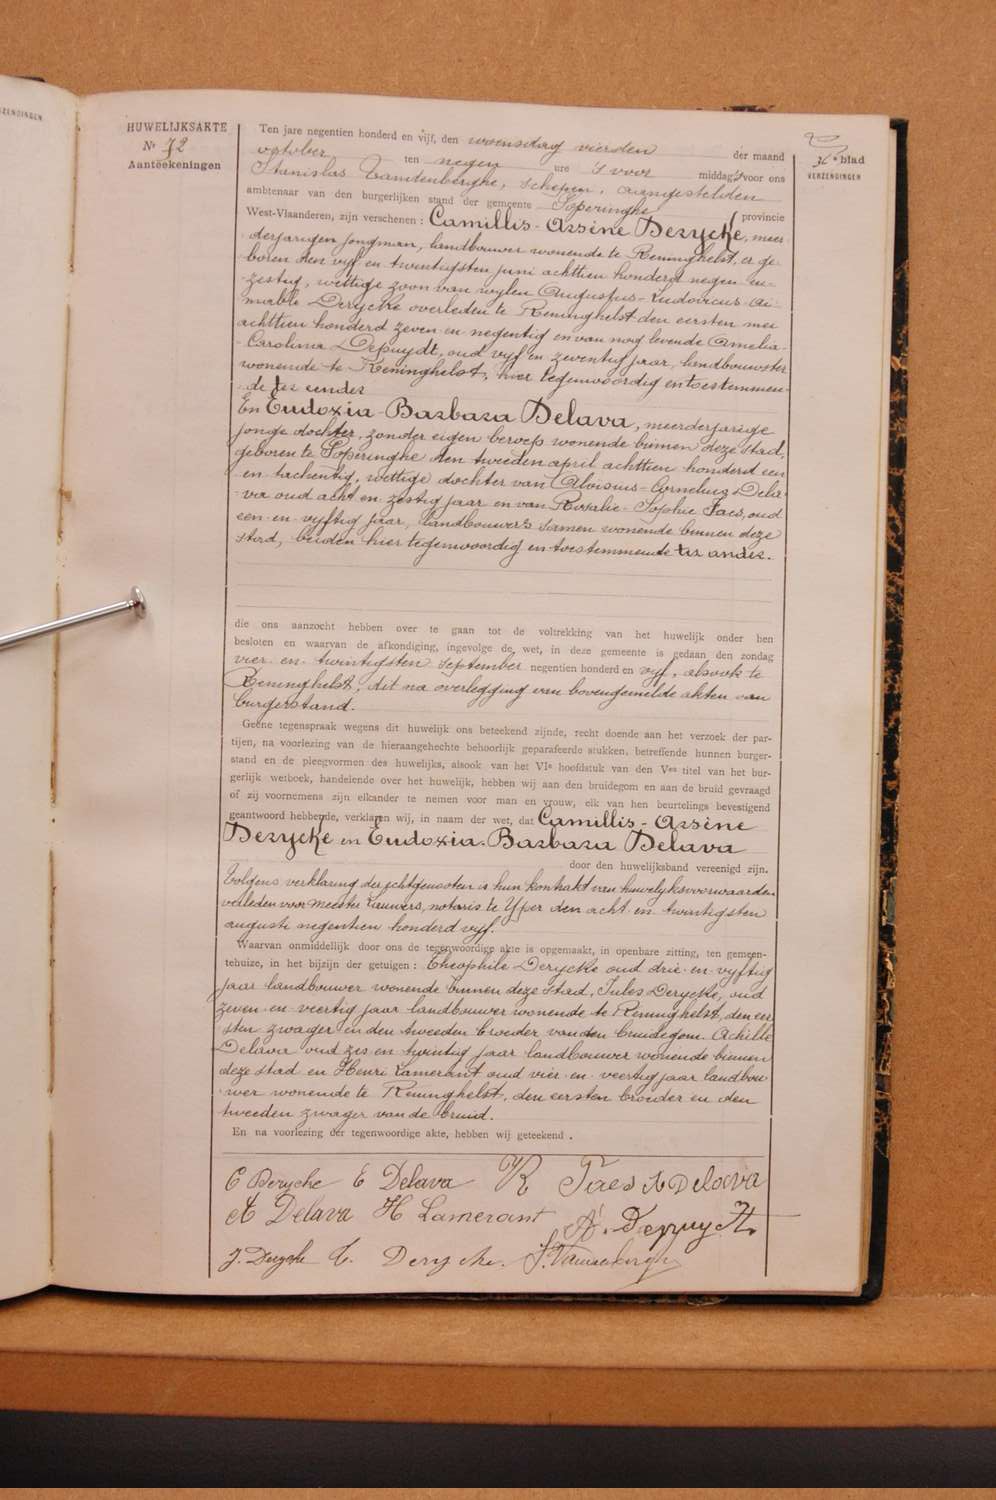 ZENDINGEN
HUWELIJKSAKTE
Nr 72
Aanteekeningen
Ten jare negentien honderd en vijf, den woensdag vierden
der maand
october ten negen ure 's voor middags voor ons
Stanislas Vandenberghe, schepen, aangestelden
ambtenaar van den burgerlijken stand der gemeente Poperinghe provincie
West-Vlaanderen, zijn verschenen : Camillis-Arsène Derycke, meer-
derjarigen jongman, landbouwer wonende te Reninghelst, er ge-
boren den vijf en twintigsten juni achttien honderd negen en-
zestig, wettige zoon van wijlen Augustus-Ludovicus-Ai-
mable Derycke overleden te Reninghelst den eersten mei
achttien honderd zeven en negentig en van nog levende Amelia-
Carolina Depuydt, oud vijf en zeventig jaar, landbouwster
wonende te Reninghelst, hier tegenwoordig en toestemmen-
de ter eender
En Eudoxia-Barbara Delava, meerderjarige
jonge dochter, zonder eigen beroep wonende binnen deze stad,
geboren te Poperinghe den tweeden april achttien honderd een
en tachentig, wettige dochter van Aloisius-Cornelius Dela-
va oud acht en zestig jaar en van Rosalie-Sophie Faes, oud
een en vijftig jaar, landbouwers samen wonende binnen deze
stad, beiden hier tegenwoordig en toestemmende ter ander.
die ons aanzocht hebben over te gaan tot de voltrekking van het huwelijk onder hen
besloten en waarvan de afkondiging, ingevolge de wet, in deze gemeente is gedaan den zondag
vier en twintigsten september negentien honderd en vijf, alsook te
Reninghelst, dit na overlegging van bovengemelde akten van
burgerstand.
Geene tegenspraak wegens dit huwelijk ons beteekend zijnde, recht doende aan het verzoek der par-
tijen, na voorlezing van de hieraangehechte behoorlijk geparafeerde stukken, betreffende hunnen burger-
stand en de pleegvormen des huwelijks, alsook van het VIe hoofdstuk van den Ven titel van het bur-
gerlijk wetboek, handelende over het huwelijk, hebben wij aan den bruidegom en aan de bruid gevraagd
of zij voornemens zijn elkander te nemen voor man en vrouw, elk van hen beurtelings bevestigend
geantwoord hebbende, verklaren wij, in naam der wet, dat Camillis-Arsène
Derycke en Eudoxia-Barbara Delava
door den huwelijksband vereenigd zijn.
Volgens verklaring der echtgenooten is hun kontrakt van huwelijksvoorwaarden
verleden voor meester Lauwers, notaris te Yper den acht en twintigsten
augusti negentien honderd vijf.
Waarvan onmiddelijk door ons de tegenwoordige akte is opgemaakt, in openbare zitting, ten gemeen-
tehuize, in het bijzijn der getuigen : Theophile Derycke oud drie en vijftig
jaar landbouwer wonende binnen deze stad, Jules Derycke, oud
zeven en veertig jaar landbouwer wonende te Reninghelst, den eer-
sten zwager en den tweeden broeder van den bruidegom. Achille
Delava oud zes en twintig jaar landbouwer wonende binnen
deze stad en Henri Lamerant oud vier en veertig jaar landbou-
wer wonende te Reninghelst, den eersten broeder en den
tweeden zwager van de bruid.
En na voorlezing der tegenwoordige akte, hebben wij geteekend .
C Derycke E Delava R Faes A Delava
A Delava H Lamerant A. Depuydt
J. Derycke T. Derycke. S. Vandenberghe
36e blad
VERZENDINGEN